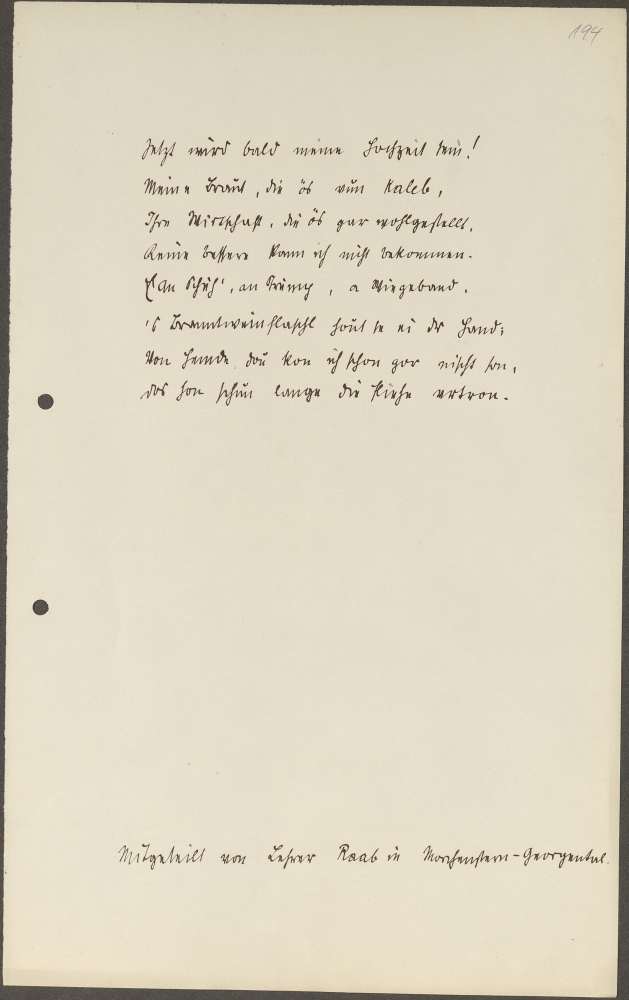 194
Jetzt wird bald meine Hochzeit sein!
Meine Braut, die ös vun Kaleb,
Ihre Wirtschaft, die ös gar wohlgestellt,
Keine bessere kann ich nicht bekommen.
an Schuh', an Strump, a Wiegeband.
's Brandtweinflaschl hout se ei dr Hand;
Von Hemde dou kon ich schon gor nischt son,
dos hon schun lange die Kiehe vrtron.
Mitgeteilt von Lehrer Raab in Morchenstern-Georgental.